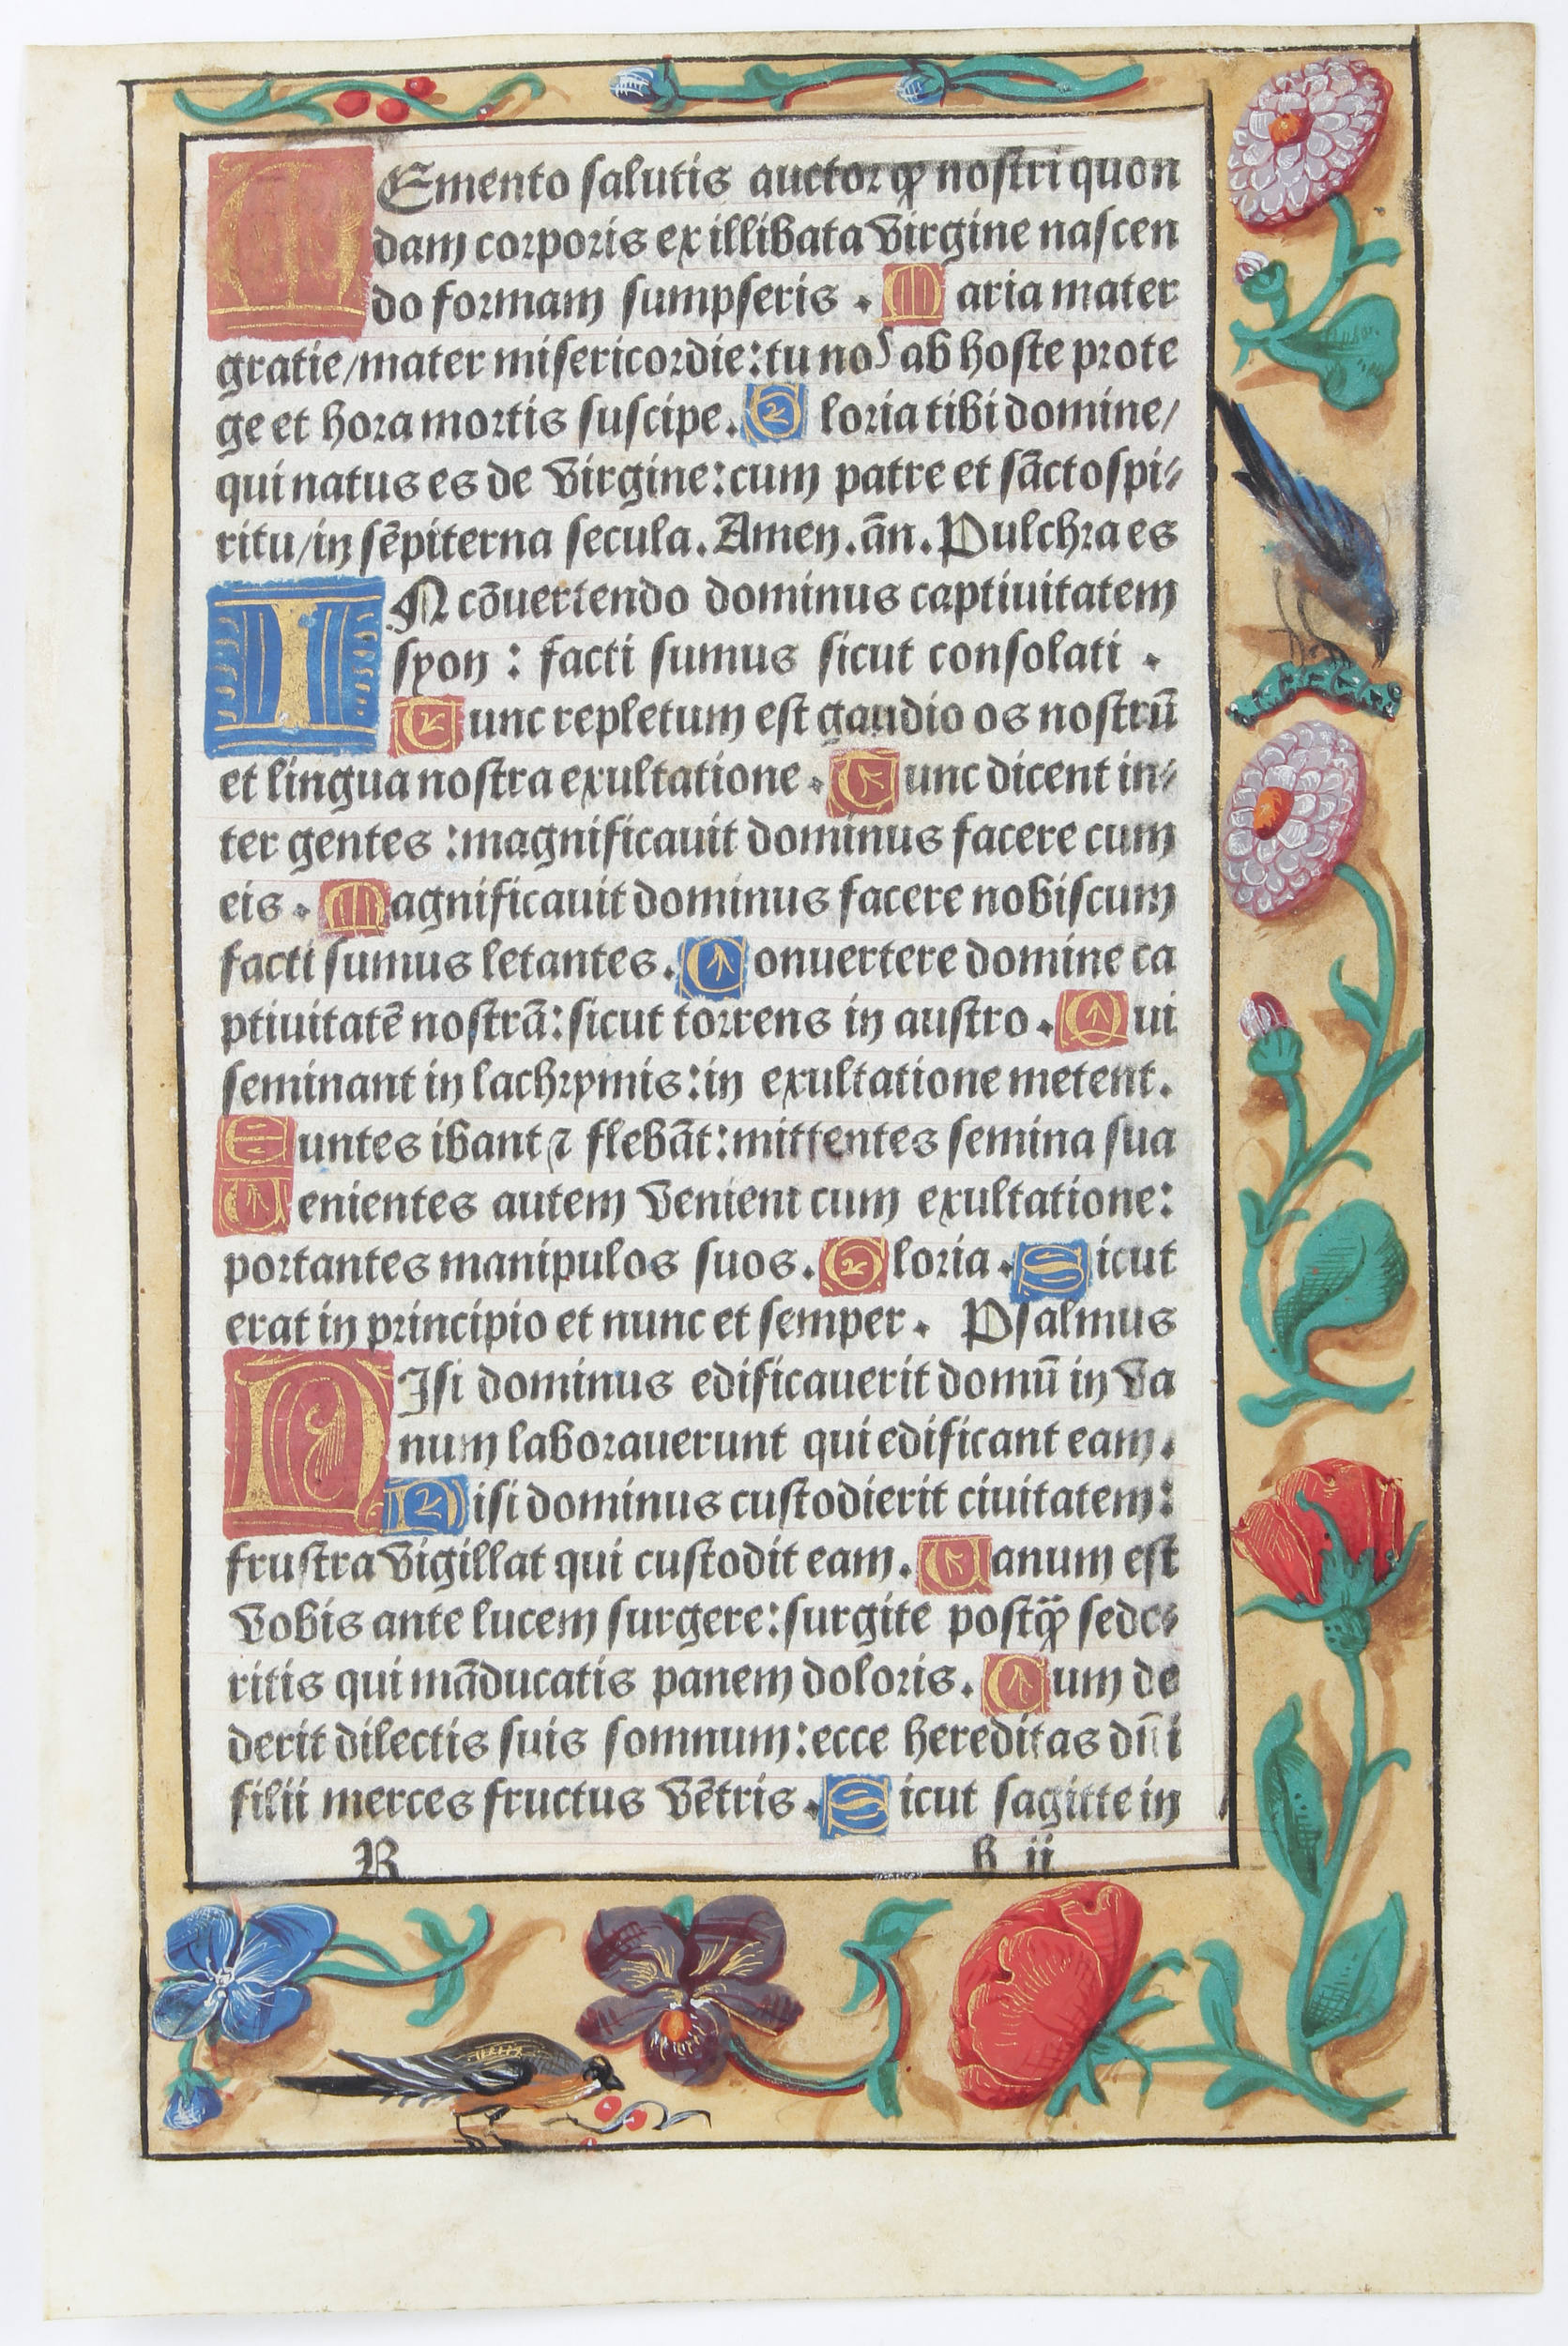 MEmento salutis auctor qꝫ nostri quon
dam corporis ex illibata virgine nascen
do formam sumpseris . Maria mater
gratie/mater misericordie: tu nos ab hoste prote
ge et hora mortis suscipe. Gloria tibi domine/
qui natus es de virgine: cum patre et sācto spi⸗
ritu/in sēpiterna secula. Amen. ān. Pulchra es
IN cōuertendo dominus captiuitatem
syon : facti sumus sicut consolati .
Tunc repletum est gaudio os nostrū
et lingua nostra exultatione. Tunc dicent in⸗
ter gentes : magnificauit dominus facere cum
eis. Magnificauit dominus facere nobiscum
facti sumus letantes. Conuertere domine ca
ptiuitatē nostrā: sicut torrens in austro. Qui
seminant in lachrymis: in exultatione metent.
Euntes ibant ⁊ flebāt: mittentes semina sua
Uenientes autem venient cum exultatione:
portantes manipulos suos. Gloria. Sicut
erat in principio et nunc et semper. Psalmus
NIsi dominus edificauerit domū in va
num laborauerunt qui edificant eam.
Nisi dominus custodierit ciuitatem:
frustra vigillat qui custodit eam. Uanum est
vobis ante lucem surgere: surgite postq̄ꝫ sede⸗
ritis qui māducatis panem doloris. Cum de
derit dilectis suis somnum: ecce hereditas dn̄i
filii merces fructus vētris. Sicut sagitte in
R b ii